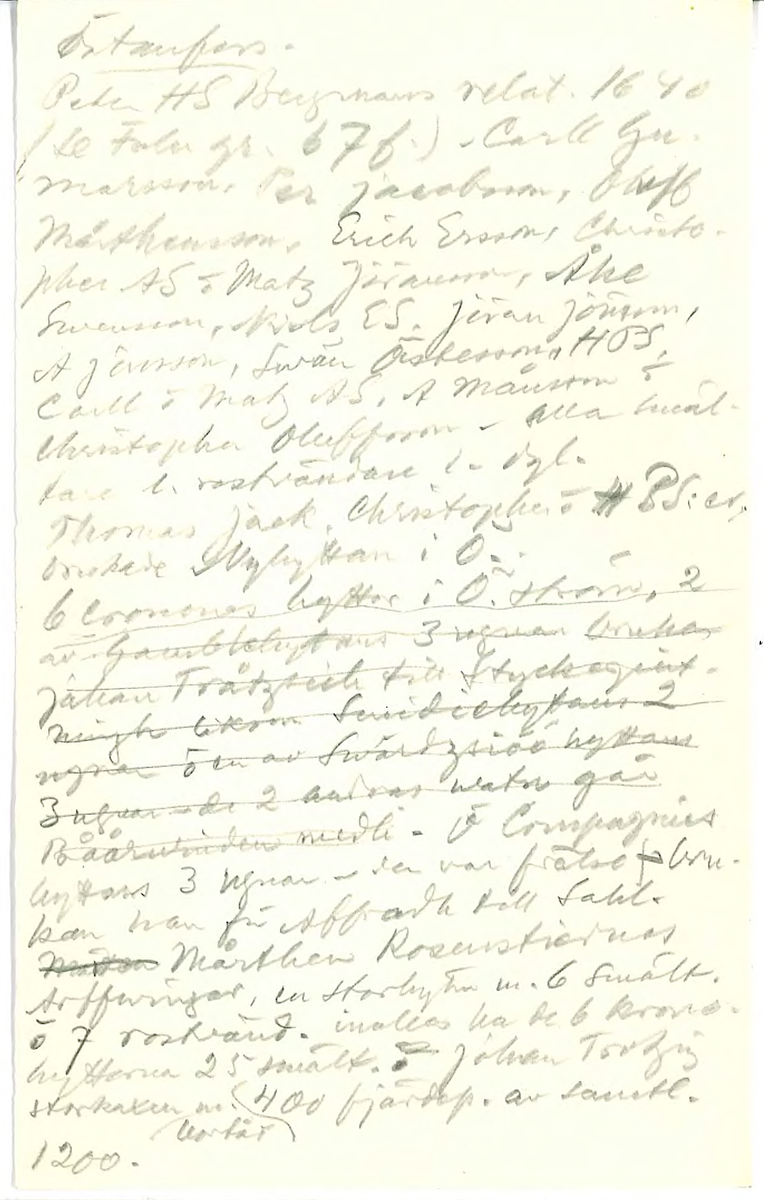 Östanfors.
Peder HS Bergmans relat. 1640
(se Falu gr. 67 f.) - Carll Gu-
marsson, Per Jacobsson, Oluff
Mårthensson, Erich Ersson, Christo-
pher AS o Matz Jöransson, Åke
Swensson, Niels ES. Jöran Jönsson,
A Jönsson, Swän Östensson, HOS,
Carll o Matz AS, A Månsson o
Christopher Oluffsson - alla smäl-
tare l. rostvändare l. dyl.
Thomas Jack, Christopher o HPS:er,
brukare Nyhyttan i Ö.
6 cronones hyttor i Ö. ström, 2
av Gambblehyttans 3 ugnar brukar
Johan Tråtzich till Styckegiut-
ningh liksom Smidiehyttans 2
ugnar o en av Swärdzsiöö hyttans
3 ugnar - de 2 andras watn går
Båårwinden medh. - Compagnies
hyttans 3 ugnar - den var frälse bru-
kan han för Affradh till Sahl.
Mårthen Rosenstiernas
Arffwingar, en storhytta m. 6 smält.
o 7 rostvänd. inalles ha de 6 krono-
hyttorna 25 smält. o Johan Trotzig
storkaxen m. 400 fjärdep. av samtl.
bortåt
1200.